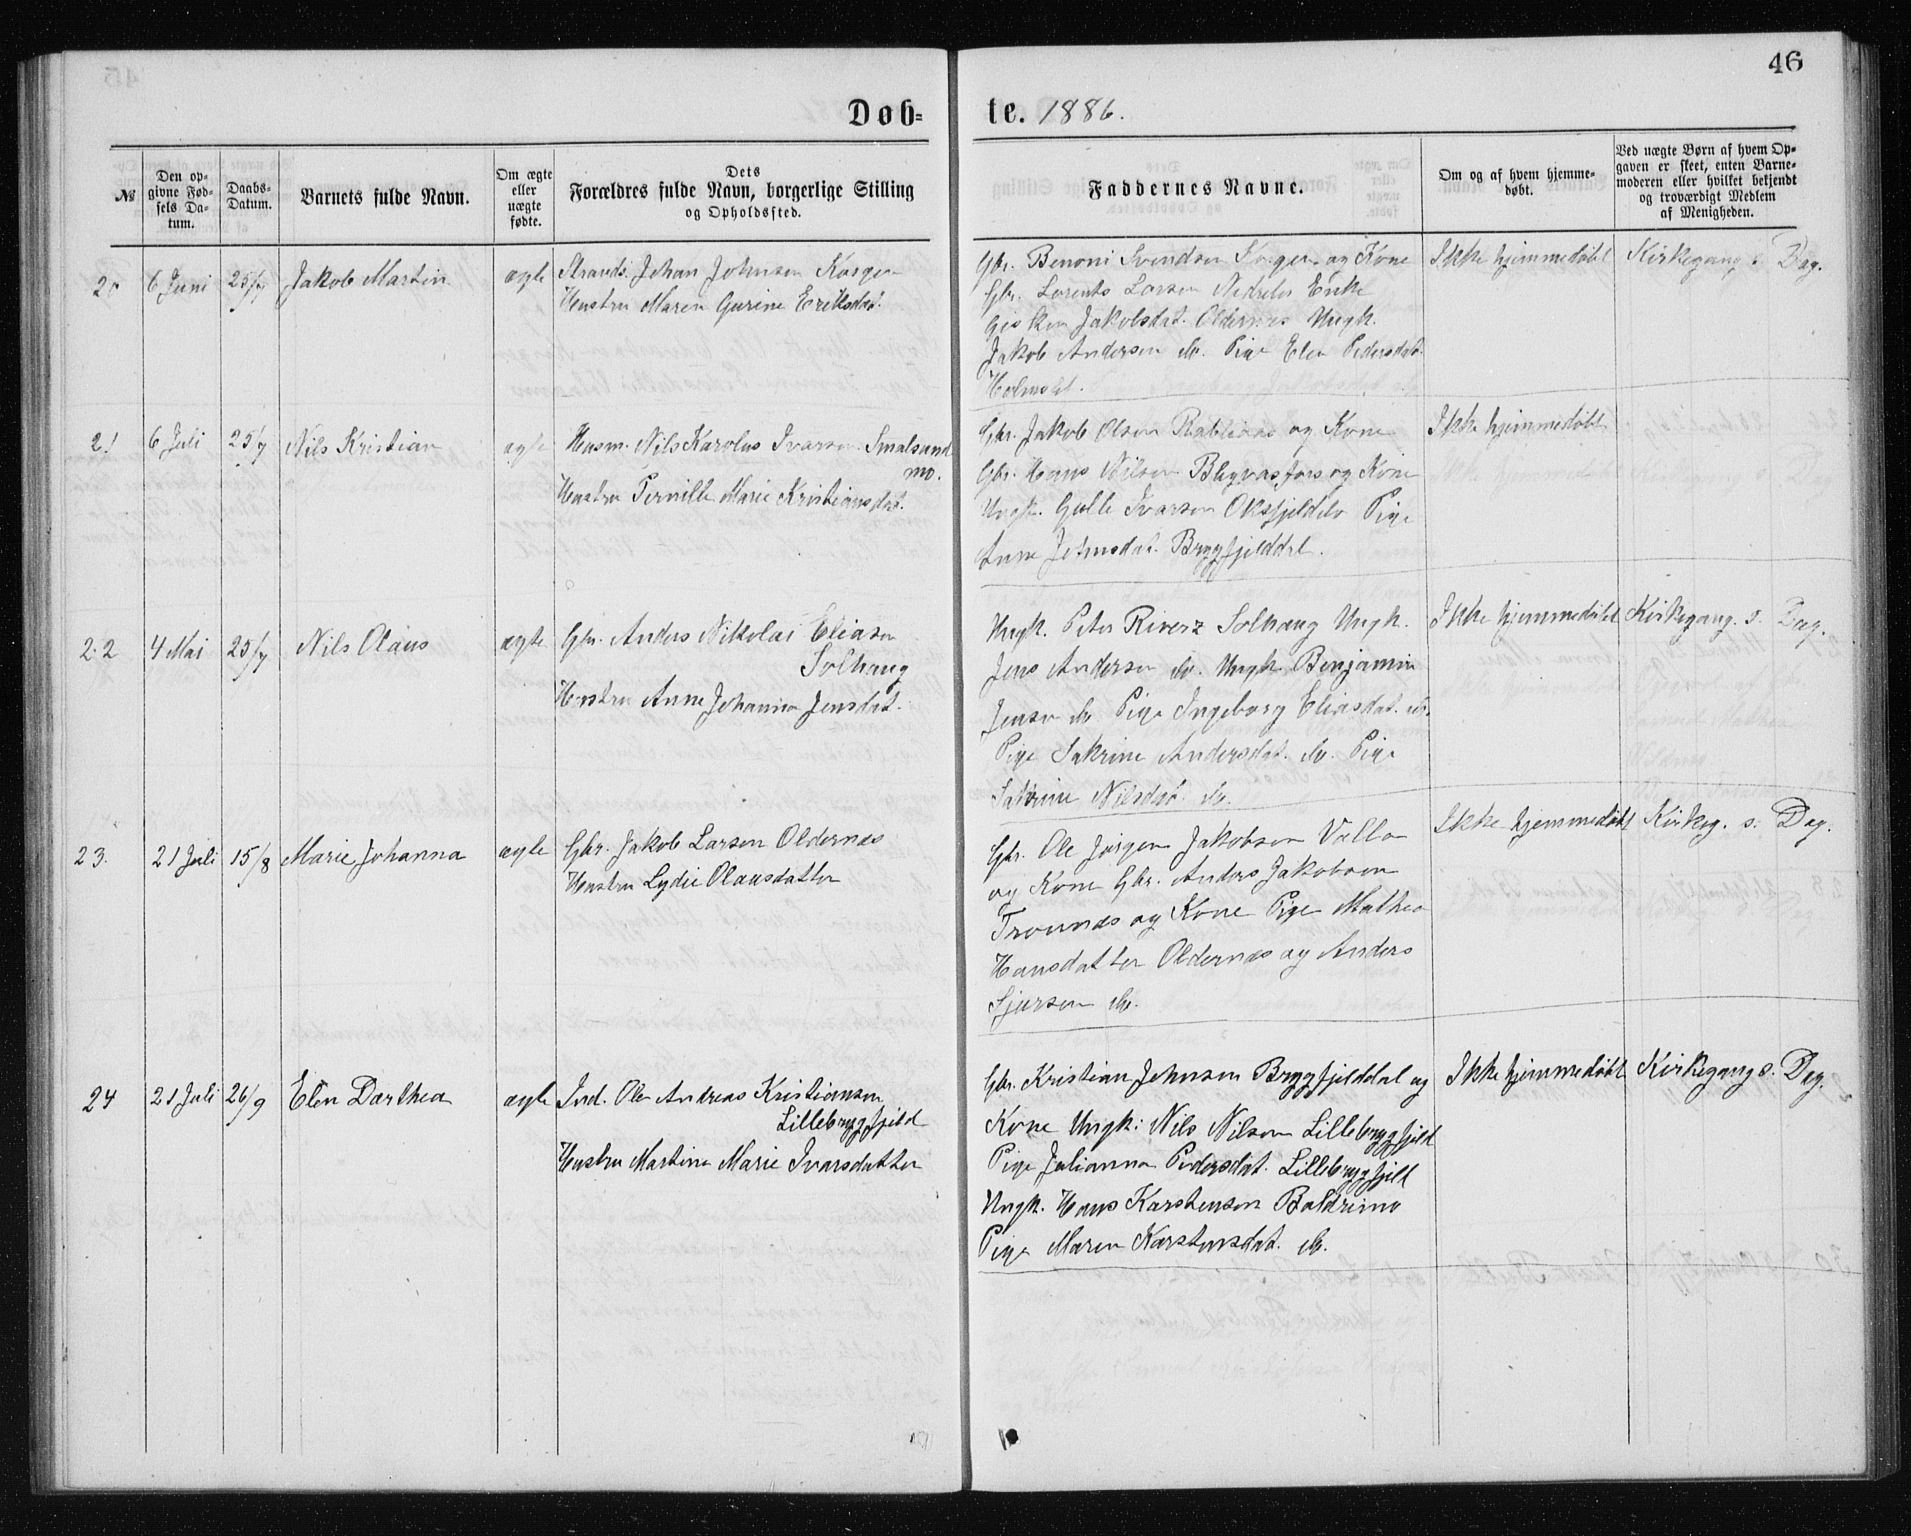 46
Døb=
te. 1886.
№
Den op-
givne Fød-
sels Da-
tum.
Daabs-
Datum.
Barnets fulde Navn.
Om ægte
eller
uægte
fødte.
Dets
Forældres fulde Navn, borgerlige Stilling
og Opholdssted.
Faddernes Navne.
Om og af hvem hjemme-
døbt.
Ved uægte Børn af hvem Op-
gaven er skeet, enten Barne-
moderen eller hvilket bekjendt
og troværdigt Medlem
af Menigheden.
20 6 Juni 25/7 Jakob Martin ægte
Strands. Johan Johnsen
Hustru Maren Gurine Eriksdat.
Gbr. Benoni Svendsen og Kone
Gbr. Lorents Larsen Enke
Jakobsdat. Oldernes Ungk.
Jakob Andersen do. Pige Elen Pedersdat.
Ikke hjemmedøbt
Kirkegang s. Dag.
21 6 Juli 25/7 Nils Kristian ægte
Husm. Nils Karolus Ivarsen Smalsund
mo.
Hustru Pernille Marie Kristiansdat.
Gbr. Jakob Olsen og Kone
Gbr. Hans Nilsen og Kone
Ungk. Ivarsen Pige
Anne Johnsdat. Bryggfjelddal.
Ikke hjemmedøbt
22 4 Mai 25/7 Nils Olaus ægte
Gbr. Anders Nikolai Eliasen
Solhaug
Hustru Anne Johanna Jensdat.
Ungk. Peter Solhaug Ungk.
Jens Andersen do. Ungk. Benjamin
Jensen do Pige Ingeborg Eliasdat. do.
Pige Sakrine Andersdat. do. Pige
Sakrine Nilsdat. do.
Ikke hjemmedøbt
Kirkegang. s. Dag.
23. 21 Juli 15/8 Marie Johanna ægte
Gbr. Jakob Larsen Oldernæs
Hustru Lydie Olausdatter
Gbr. Ole Jørgen Jakobsen
og Kone Gbr. Anders Jakobsen
og Kone Pige Mathea
Hansdatter Oldernæs og Anders
Sjursen do.
Ikke hjemmedøbt
Kirkeg. s. Dag.
24 21 Juli 26/9 Elen Darthea ægte
Ind. Ole Andreas Kristiansen
Lillebryggfjeld
Hustru Martine Marie Ivarsdatter
Gbr. Kristian Johnsen Bryggfjelddal og
Kone Ungk: Nils Nilsen Lillebryggfjeld
Pige Julianna Pedersdat. Lillebryggfjeld
Ungk. Hans Karstensen
Pige Maren Karstensdat. do.
Ikke hjemmedøbt
Kirkegang s. Dag.